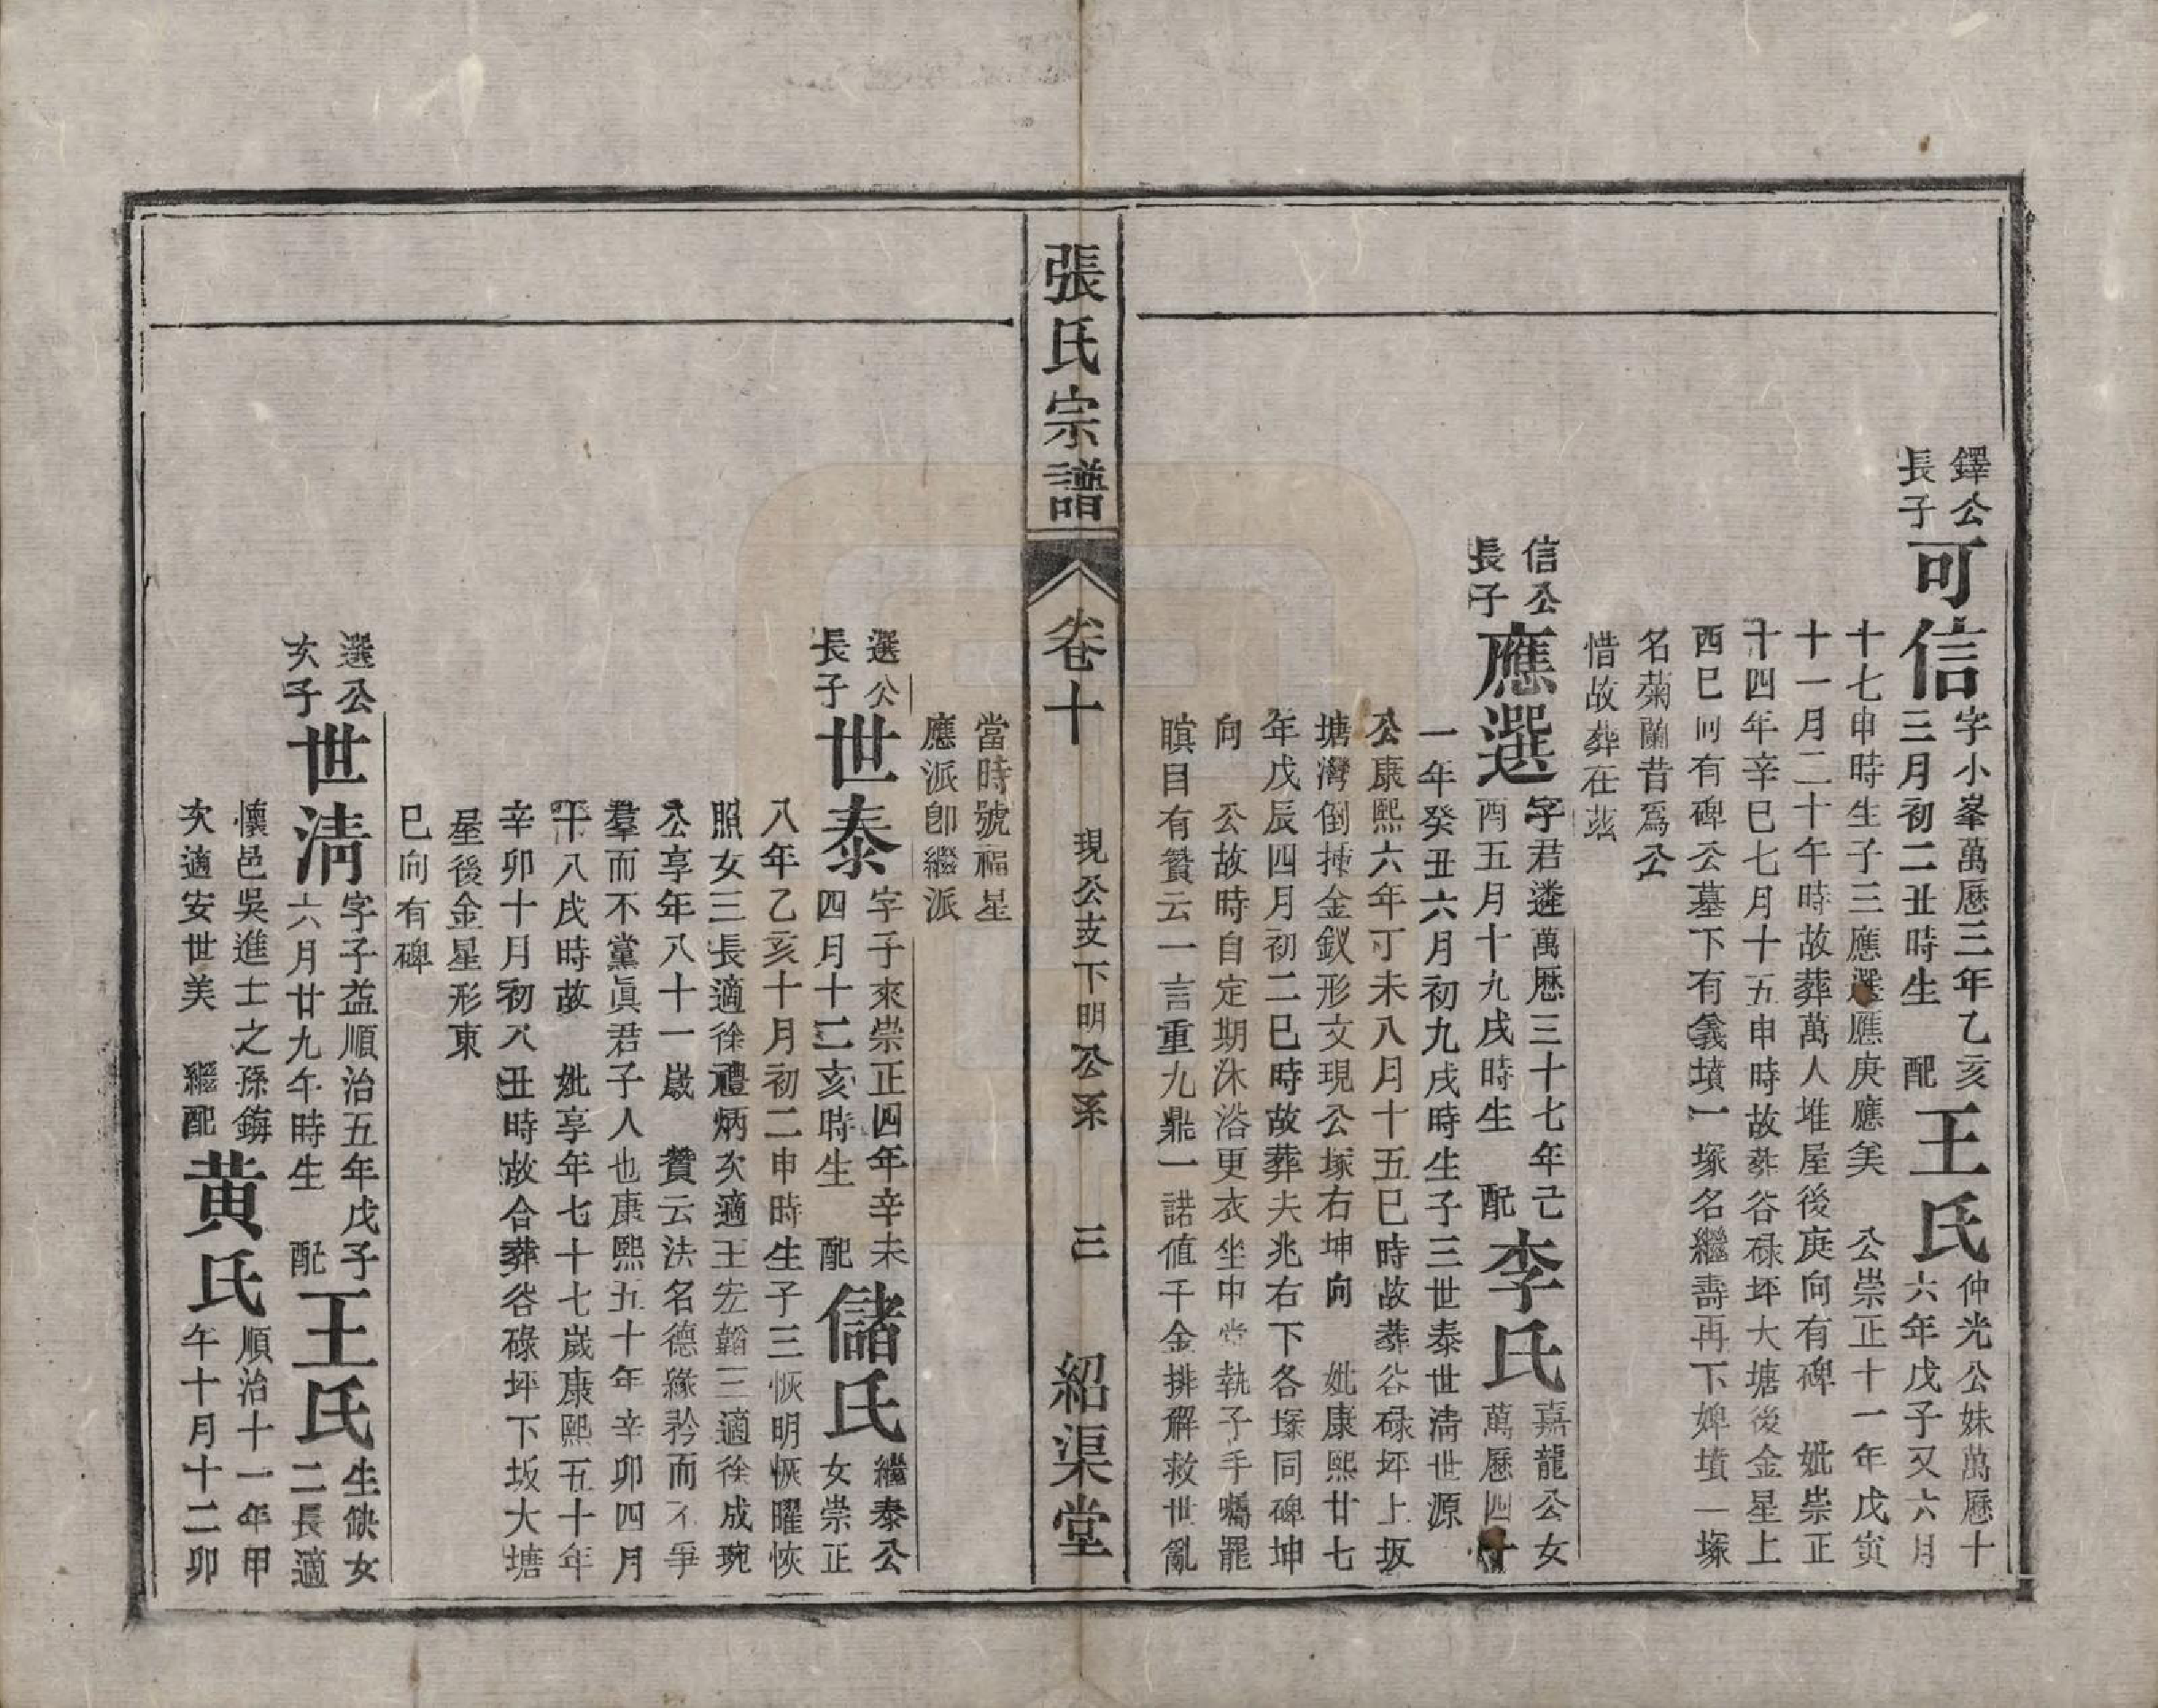 鐸公
長子
可信
字小峯萬歷三年乙亥
三月初二丑時生　配
王氏
仲光公妹萬歷十
六年戊子又六月
十七申時生子三應選應庚應奚　公崇正十一年戊寅
十一月二十午時故葬萬人堆屋後庚向有碑　妣崇正
十四年辛巳七月十五申時故葬谷碌坪大塘後金星上
西巳向有碑公墓下有義墳一塚名繼壽再下婢墳一塚
名菊蘭昔爲公
惜故葬在茲
信公
長子
應選
字君遴萬歷三十七年己
酉五月十九戌時生　配
李氏
嘉龍公女
萬歷四十
一年癸丑六月初九戌時生子三世泰世淸世源
公康熙六年丁未八月十五巳時故葬谷碌坪上坂
塘灣倒揷金釵形文現公塚右坤向　妣康熙廿七
年戊辰四月初二巳時故葬夫兆右下各塚同碑坤
向　公故時自定期沐浴更衣坐中堂執子手囑罷
瞑目有贊云一言重九鼎一諾值千金排解救世亂
張氏宗譜
卷十
現公支下明公系
三
紹渠堂
當時號福星
應派卽繼派
選公
長子
世泰
字子來崇正四年辛未
四月十二亥時生　配
儲氏
繼泰公
女崇正
八年乙亥十月初二申時生子三恢明恢曜恢
照女三長適徐禮炳次適王宏韜三適徐成琬
公享年八十一歲　贊云法名德緣矜而不爭
羣而不黨眞君子人也康熙五十年辛卯四月
十八戌時故　妣享年七十七歲康熙五十年
辛卯十月初八丑時故合葬谷碌坪下坂大塘
屋後金星形東
巳向有碑
選公
次子
世淸
字子益順治五年戊子
六月廿九午時生　配
王氏
生缺女
二長適
懷邑吳進士之孫鋂
次適安世美　繼配
黄氏
順治十一年甲
午十月十二卯